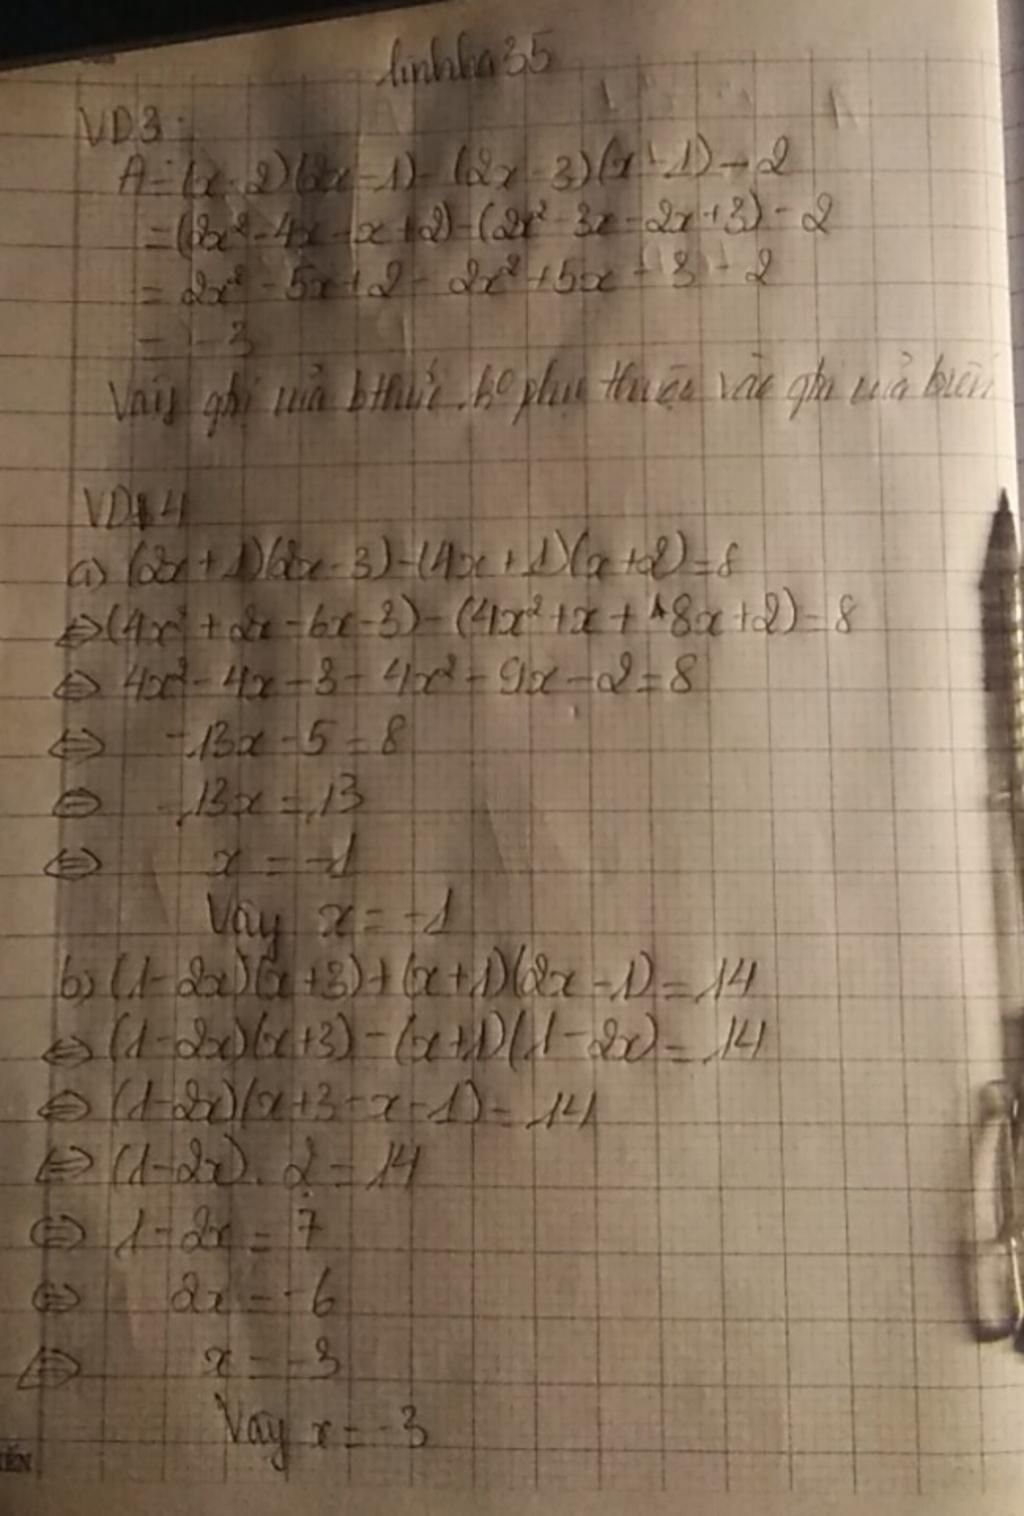 linhha35
VD3:
A = (x-2)(2x-1) - (2x-3)(x-1) - 2
= (2x² - 4x - x + 2) - (2x² - 3x - 2x + 3) - 2
= 2x² - 5x + 2 - 2x² + 5x - 3 - 2
= -3
Vậy gtrị của bthức ko phụ thuộc vào gtrị của biến
VD4
a) (2x+1)(2x-3) - (4x+1)(x+2) = 8
⇔ (4x² + 2x - 6x - 3) - (4x² + x + 8x + 2) = 8
⇔ 4x² - 4x - 3 - 4x² - 9x - 2 = 8
⇔ -13x - 5 = 8
⇔ -13x = 13
⇔ x = -1
Vậy x = -1
b) (1-2x)(x+3) + (x+1)(2x-1) = 14
⇔ (1-2x)(x+3) - (x+1)(1-2x) = 14
⇔ (1-2x)(x+3-x-1) = 14
⇔ (1-2x).2 = 14
⇔ 1-2x = 7
⇔ 2x = -6
⇔ x = -3
Vậy x = -3